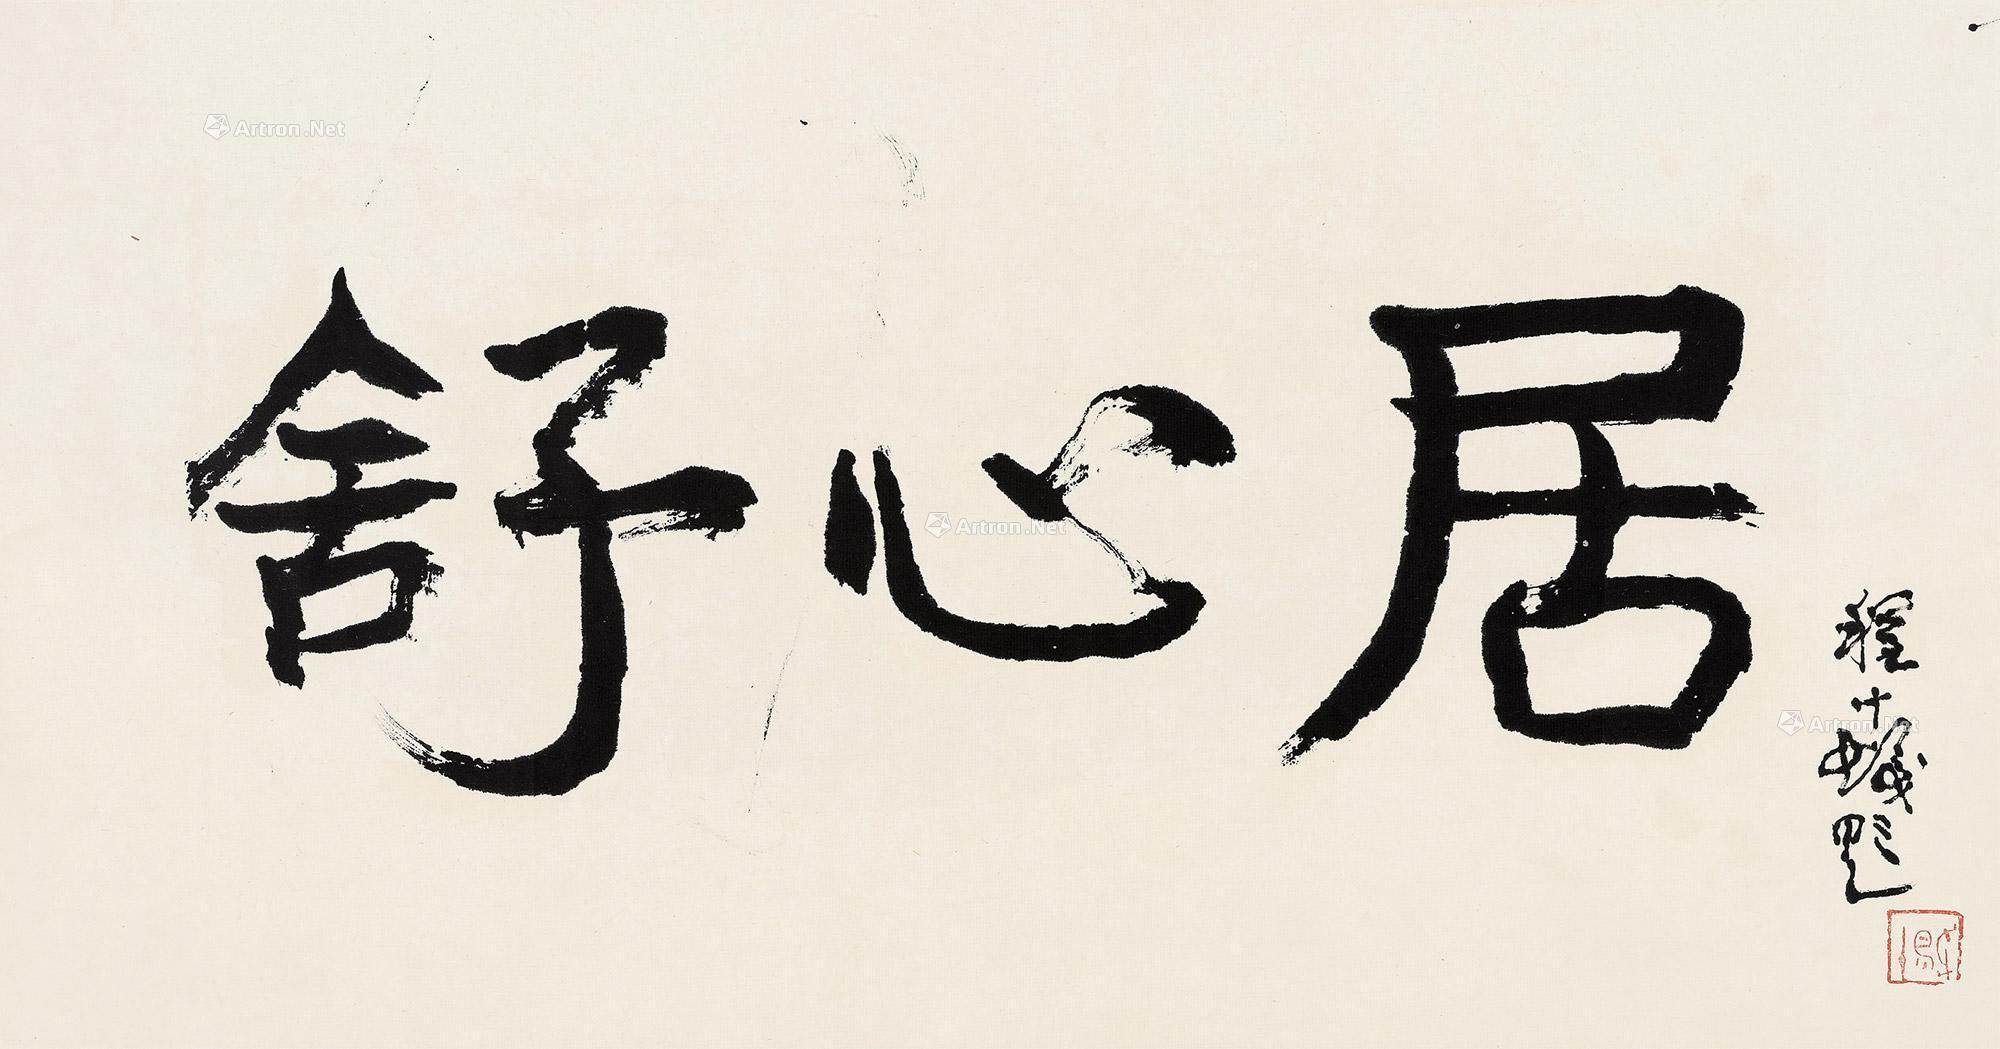 舒心居
程十发题
Artron.Net
Artron.Net
Artron.Net